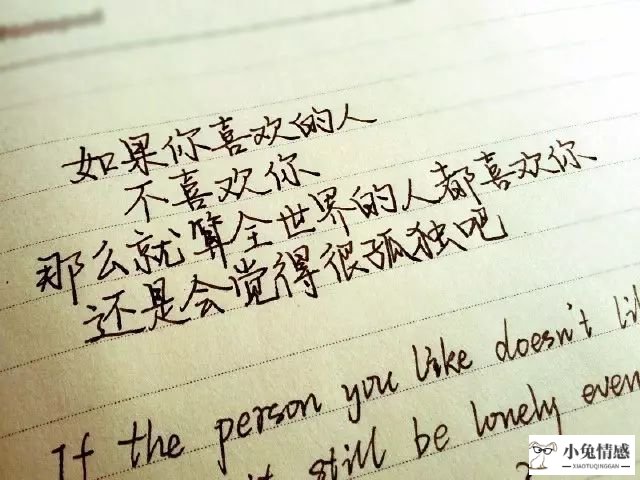 如果你喜欢的人
不喜欢你
那么就算全世界的人都喜欢你
还是会觉得很孤独吧
If the person you like doesn't
still be lonely even
小兔情感
XIAOTUQINGGAN